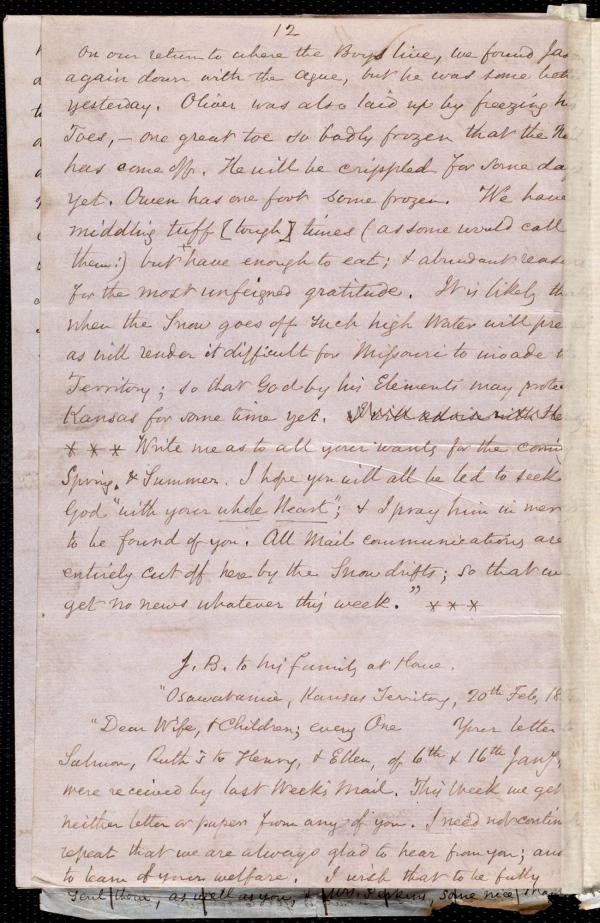 12
On our return to where the Boys live, we found Jas
again down with the ague, but he was some bett
yesterday. Oliver was also laid up by freezing h
Toes, – one great toe so badly frozen that the Na
has come off. He will be crippled for some da
yet. Owen has one foot some frozen. We have
middling tuff [tough] times (as some would call
them:) but have enough to eat; & abundant reas
for the most unfeigned gratitude. It is likely th
when the Snow goes off such high Water will pre
as will render it difficult for Missouri to invade
Territory; so that God by his Elements may prote
Kansas for some time yet. I will advise with the
* * * Write me as to all your wants for the comin
Spring, & Summer. I hope you will all be led to seek
God "with your whole Heart"; & I pray him in mer
to be found of you. All Mail communications are
entirely cut off here by the Snow drifts; so that we
get no news whatever this week." * * *
J. B. to his family at Home.
"Osawatamie, Kansas Territory, 20th Feb, 18
"Dear Wife, & Children; every One Your letter
Salmon, Ruth's to Henry, & Ellen, of 6th & 16th Jany,
were received by last Week's Mail. This Week we get
neither letter or paper from any of you. I need not contin
repeat that we are always glad to hear from you; and
to learn of your welfare. I wish that to be fully
sent them, as well as you, & Mrs. Perkins, some nice